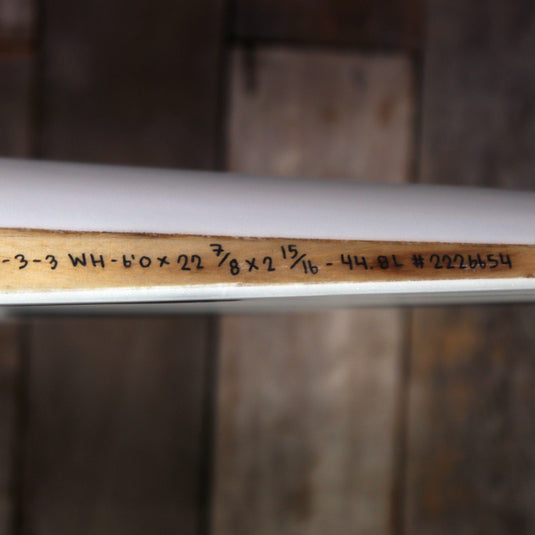 -3-3 WH-6'0 x 22 7/8 x 2 15/16 - 44.8L #2226654